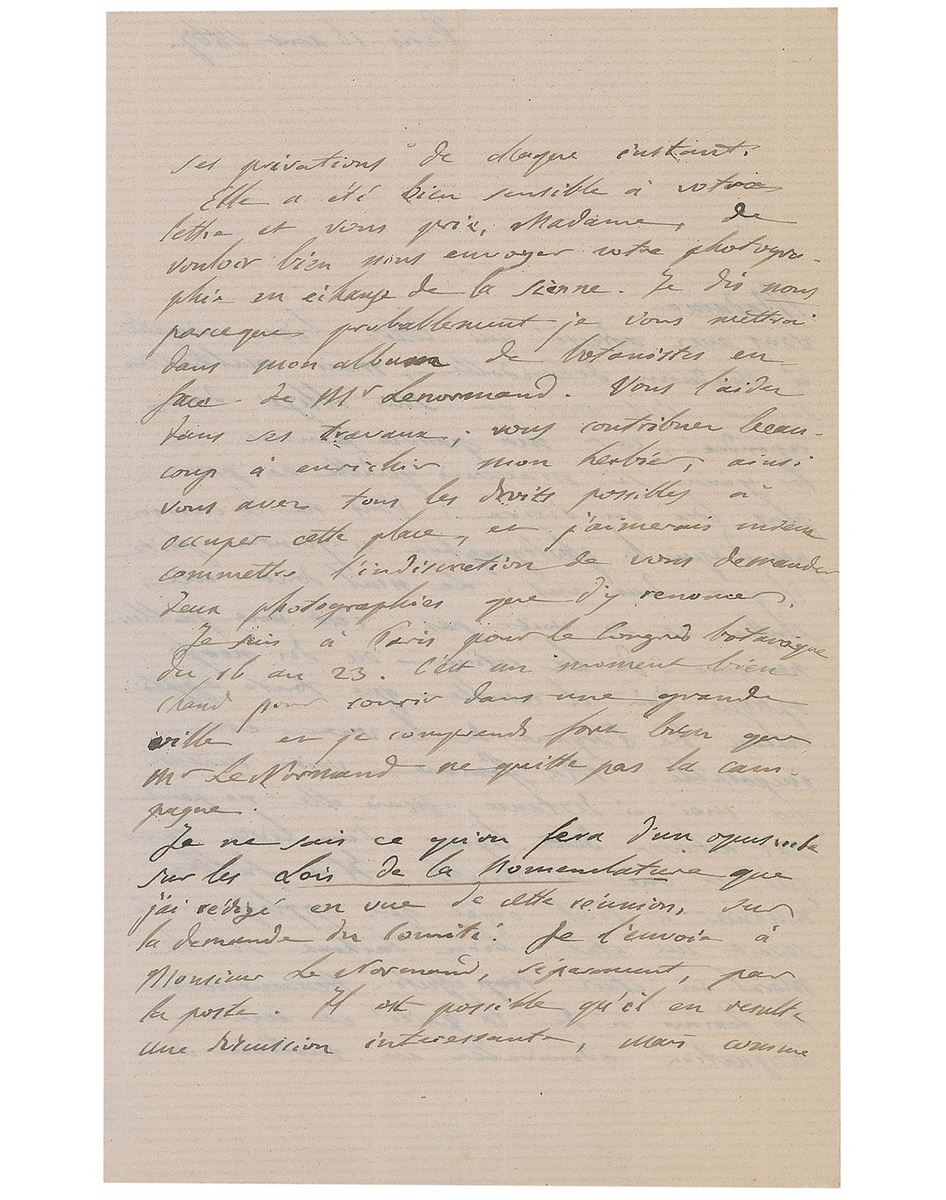 ses privations de chaque instant.
Elle a été bien sensible à votre
lettre et vous prie, Madame, de
vouloir bien nous envoyer votre photogra-
phie en échange de la sienne. Je dis nous
parceque probablement je vous mettrai
dans mon album de botanistes en
face de Mr Lenormand. Vous l'aidez
dans ses travaux, vous contribuez beau-
coup à enrichir mon herbier, ainsi
vous avez tous les droits possibles à
occuper cette place, et j'aimerais mieux
commettre l'indiscretion de vous demander
deux photographies que d'y renoncer.
Je suis à Paris pour le Congrès botanique
du 16 au 23. C'est un moment bien
chaud pour courir dans une grande
ville et je comprends fort bien que
Mr Le Normand ne quitte pas la cam-
pagne.
Je ne sais ce qu'on fera d'un opuscule
sur les Lois de la Nomenclature que
j'ai rédigé en vue de cette réunion, sur
la demande du Comité. Je l'envoie à
Monsieur Le Normand, séparément, par
la poste. Il est possible qu'il en resulte
une discussion interessante, mais comme